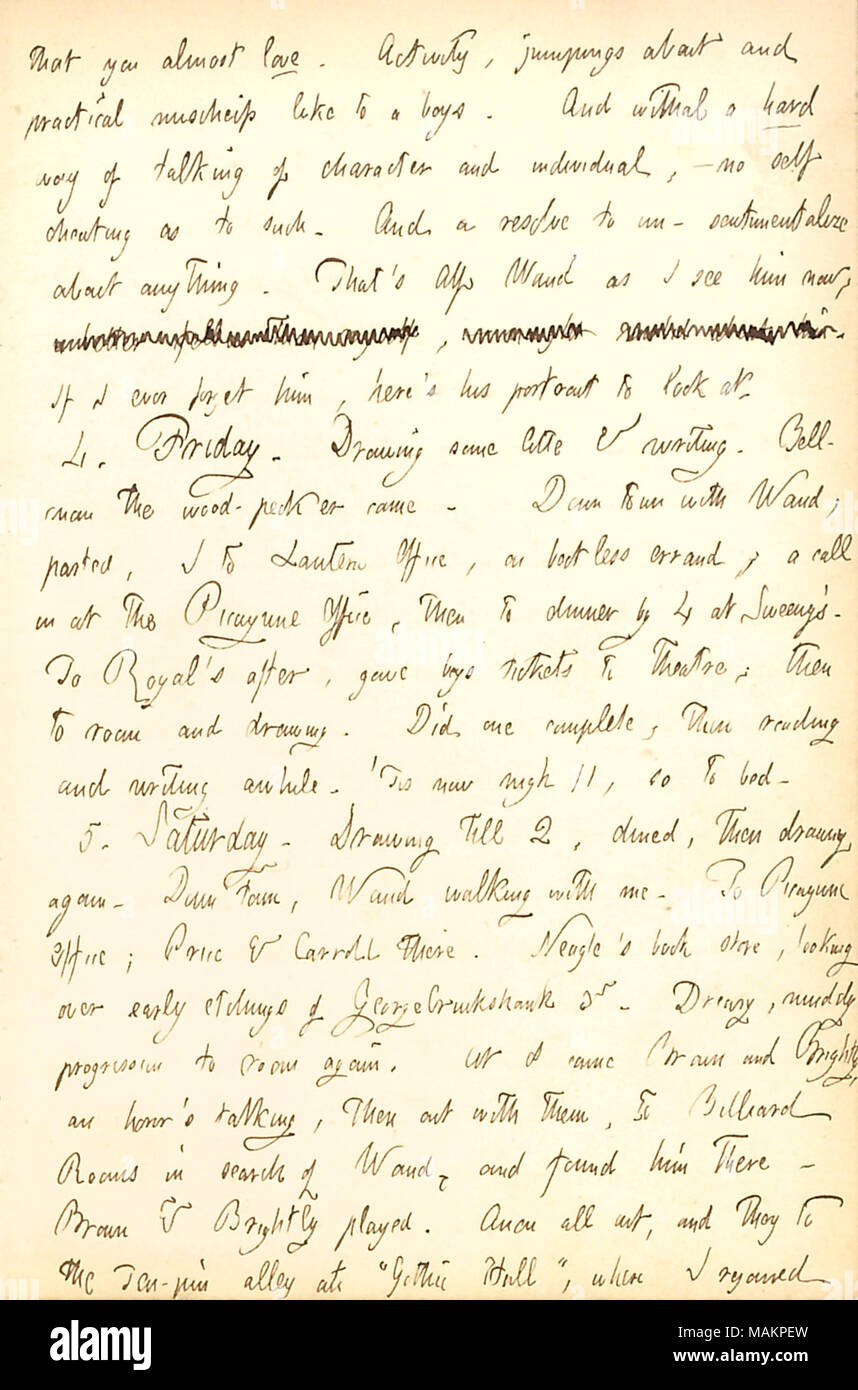 that you almost love. Activity, jumpings about and
practical mischeifs like to a boys. And withal a hard
way of talking of character and individual, — no self
cheating as to such. And a resolve to un- sentimentalize
about anything. That's Alf Waud as I see him now,
If I ever forget him, here's his portrait to look at.
4. Friday. Drawing some little & writing. Bell-
man the wood-pecker came. Down town with Waud,
parted, I to Lantern Office, on bootless errand; a call
in at the Picayune Office, then to dinner by 4 at Sweeny's.
To Royal's after, gave boys tickets to theatre; then
to room and drawing. Did one complete, then reading
and writing awhile. 'Tis now nigh 11, so to bed.
5. Saturday. Drawing till 2, dined, then drawing
again. Down town, Waud walking with me. To Picayune
Office; Price & Carroll there. Neagle's book store, looking
over early etchings of George Cruikshank
Dreary, muddy
progression to room again. At 8 came Brown and Brightly,
an hour's talking, then out with them, to Billiard
Rooms in search of Waud, and found him there -
Brown & Brightly played. Anon all out, and they to
the Ten-pin alley at "Gothic Hall", where I rejoined
alamy
Image ID: MAKPEW
www.alamy.com